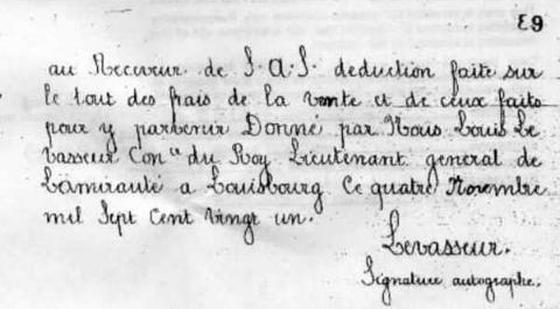 63
au Receveur de S.A.S. deduction faite sur
le tout des frais de la vente et de ceux faits
pour y parvenir Donné par Nous Louis Le
vasseur Con.er du Roy Lieutenant general de
Lamirauté a Louisbourg Ce quatre Novembre
mil Sept Cent Vingt un.
Levasseur.
Signature autographe.